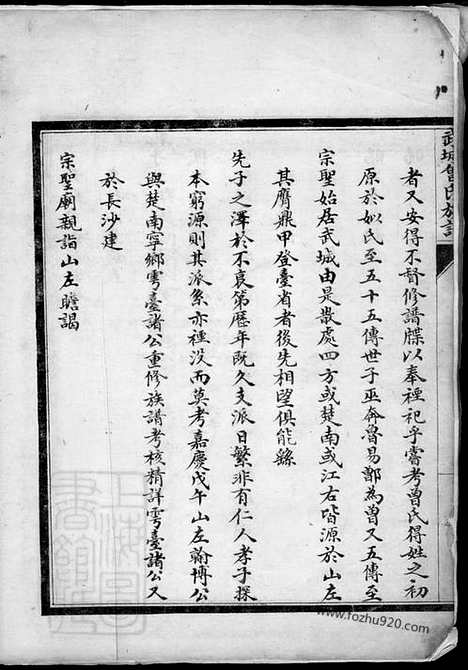 武城曾氏族譜
者又安得不督修譜牒以奉禋祀乎嘗考曾氏得姓之初
原於姒氏至五十五傳世子巫奔魯易鄫為曾又五傳至
宗聖始居武城由是散處四方或楚南或江右皆源於山左
其膺鼎甲登臺省者後先相望俱能繇
先子之澤於不衰第歷年既久支派日繁非有仁人孝子探
本窮源則其派系亦禋没而莫考嘉慶戊午山左翰博公
與楚南寧鄉雩臺諸公重修族譜考核精詳雩臺諸公又
於長沙建
宗聖廟親詣山左瞻謁
www.fozhu920.com